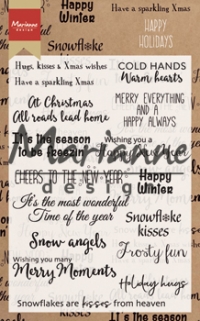 Marianne
DESIGN
Happy
Winter
Have a sparkling Xmas
HAPPY
HOLIDAYS
Snowflake
Hugs, kisses & Xmas wishes
Have a sparkling Xmas
COLD HANDS
Warm hearts
At Christmas
All roads lead home
MERRY EVERYTHING
AND A
HAPPY ALWAYS
It's the season
To be freezin'
Wishing you a
Marianne
design
CHEERS TO THE NEW YEAR
Happy
Winter
It's the most wonderful
Time of the year
Snowflake
kisses
Snow angels
Frosty fun
Wishing you many
Merry Moments
Holiday hugs
Snowflakes are kisses from heaven